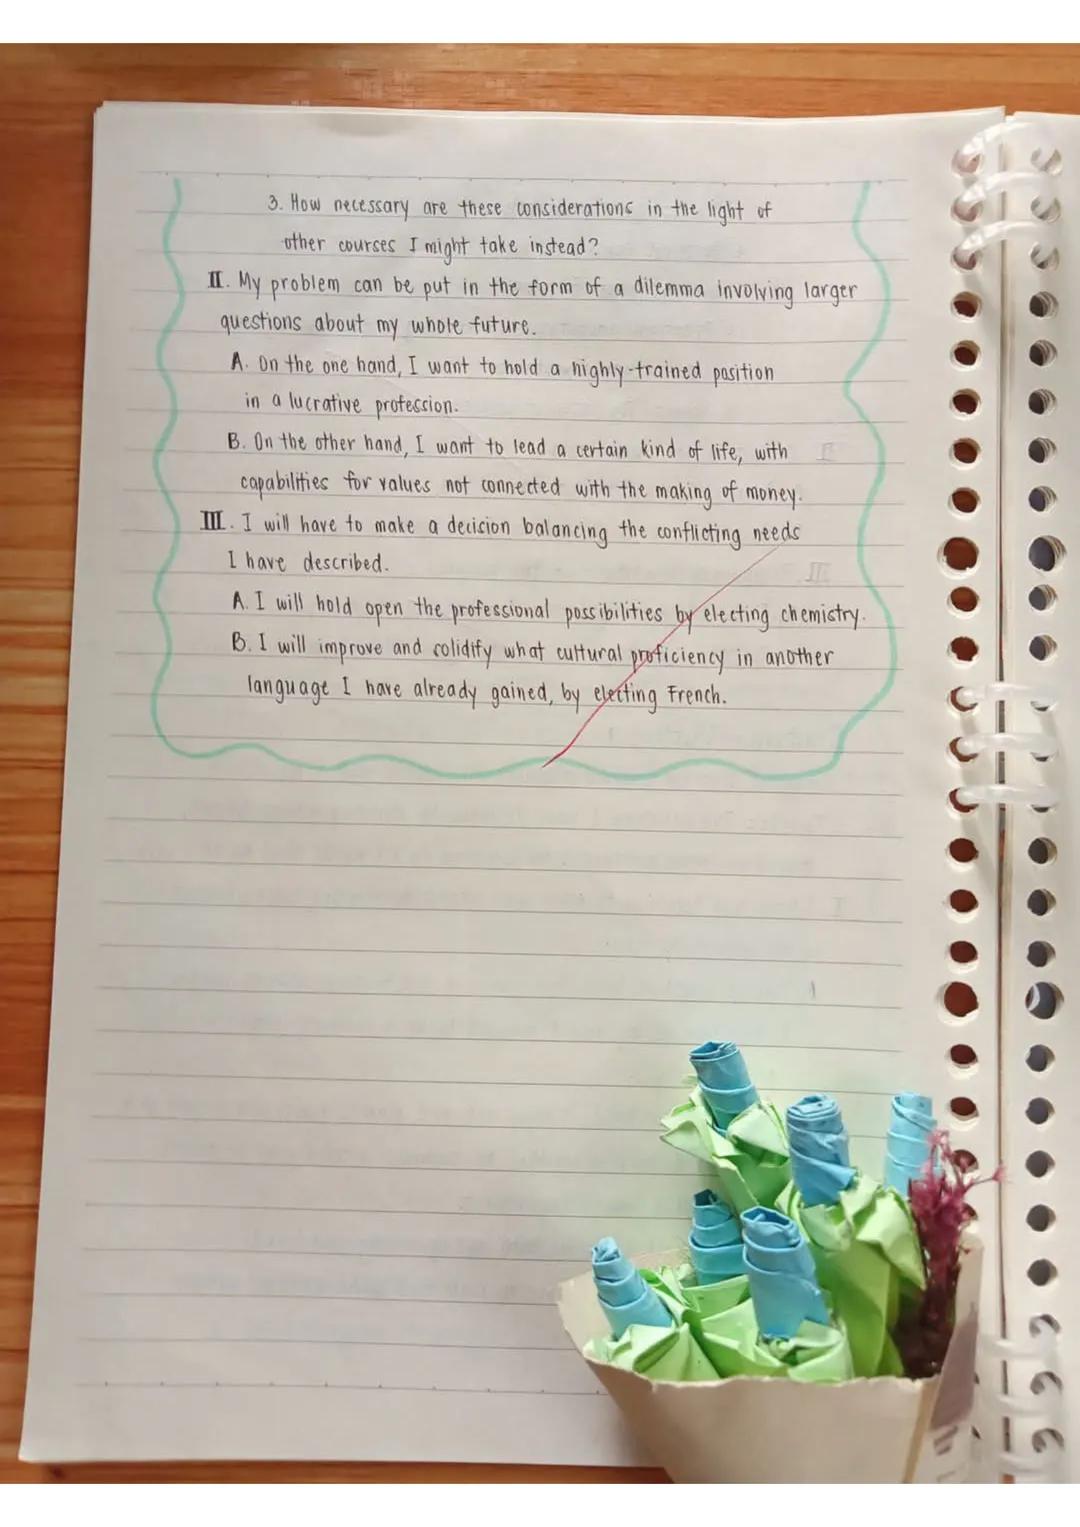 3. How necessary are these considerations in the light of
other courses I might take instead?
II. My problem can be put in the form of a dilemma involving larger
questions about my whole future.
A. On the one hand, I want to hold a highly-trained position
in a lucrative profession.
B. On the other hand, I want to lead a certain kind of life, with
capabilities for values not connected with the making of money.
III. I will have to make a decision balancing the conflicting needs
I have described.
A. I will hold open the professional possibilities by electing chemistry.
B. I will improve and solidify what cultural proficiency in another
language I have already gained, by electing French.